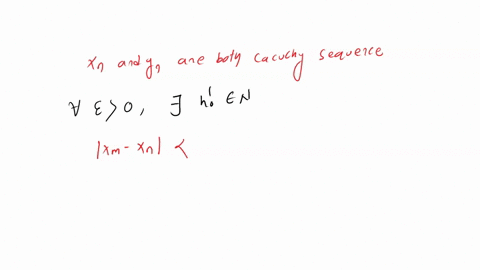 xₙ and yₙ are both cacuchy sequence
∀ ε > 0, ∃ n₀' ∈ N
|xₘ - xₙ| <